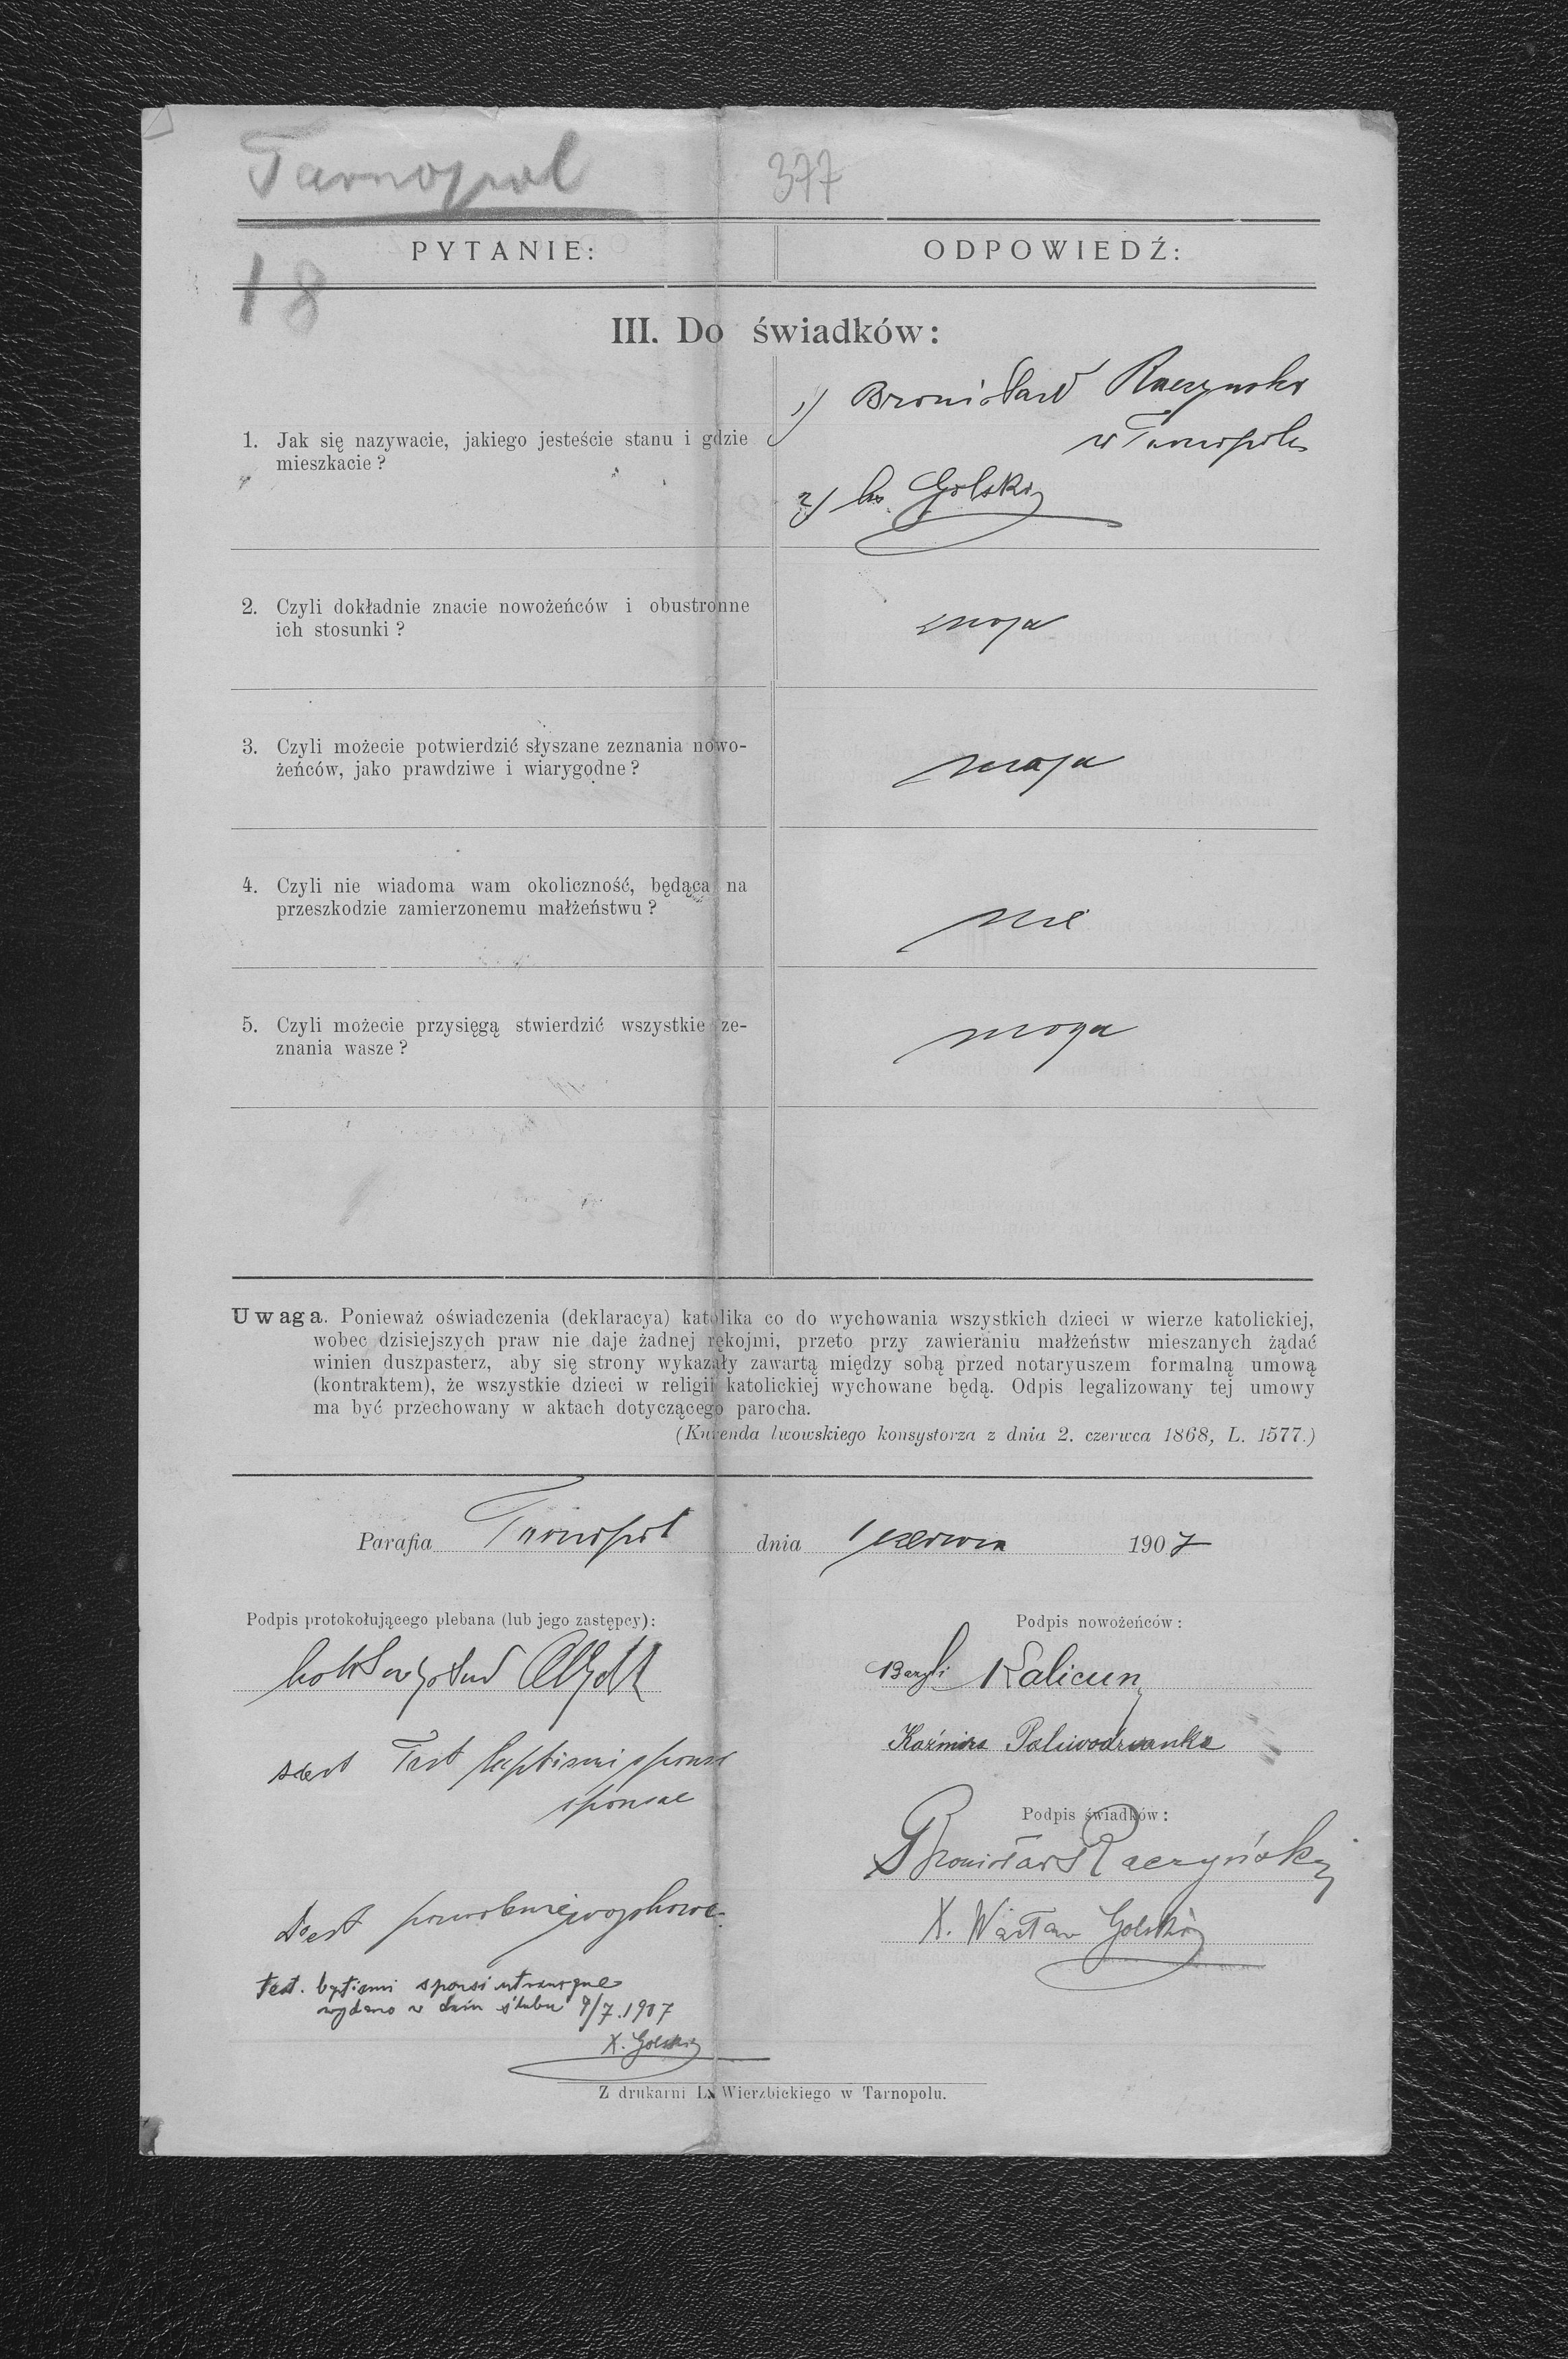 Tarnopol 377
PYTANIE: ODPOWIEDŹ:
18
III. Do świadków:
1. Jak się nazywacie, jakiego jesteście stanu i gdzie
mieszkacie?
1) Bronisław Raczyński
w Tarnopolu
2) ks. Golski
2. Czyli dokładnie znacie nowożeńców i obustronne
ich stosunki?
znają
3. Czyli możecie potwierdzić słyszane zeznania nowo-
żeńców, jako prawdziwe i wiarygodne?
4. Czyli nie wiadoma wam okoliczność, będąca na
przeszkodzie zamierzonemu małżeństwu?
nie
5. Czyli możecie przysięgą stwierdzić wszystkie ze-
znania wasze?
mogą
Uwaga. Ponieważ oświadczenia (deklaracya) katolika co do wychowania wszystkich dzieci w wierze katolickiej,
wobec dzisiejszych praw nie daje żadnej rękojmi, przeto przy zawieraniu małżeństw mieszanych żądać
winien duszpasterz, aby się strony wykazały zawartą między sobą przed notaryuszem formalną umową
(kontraktem), że wszystkie dzieci w religii katolickiej wychowane będą. Odpis legalizowany tej umowy
ma być przechowany w aktach dotyczącego parocha.
(Kurenda lwowskiego konsystorza z dnia 2. czerwca 1868, L. 1577.)
Parafia Tarnopol dnia 1 czerwca 1907
Podpis protokołującego plebana (lub jego zastępcy):
Podpis nowożeńców:
Bazyli Kalicun
Kaźmira Paliwodzianka
Test baptismi sponsi
sponsae
Podpis świadków:
Bronisław Raczyński
X. Wacław Golski
jest pozwolenie wojskowe
test. baptismi sponsi utriusque
wydano w dniu ślubu 9/7.1907
X. Golski
Z drukarni L. Wierzbickiego w Tarnopolu.